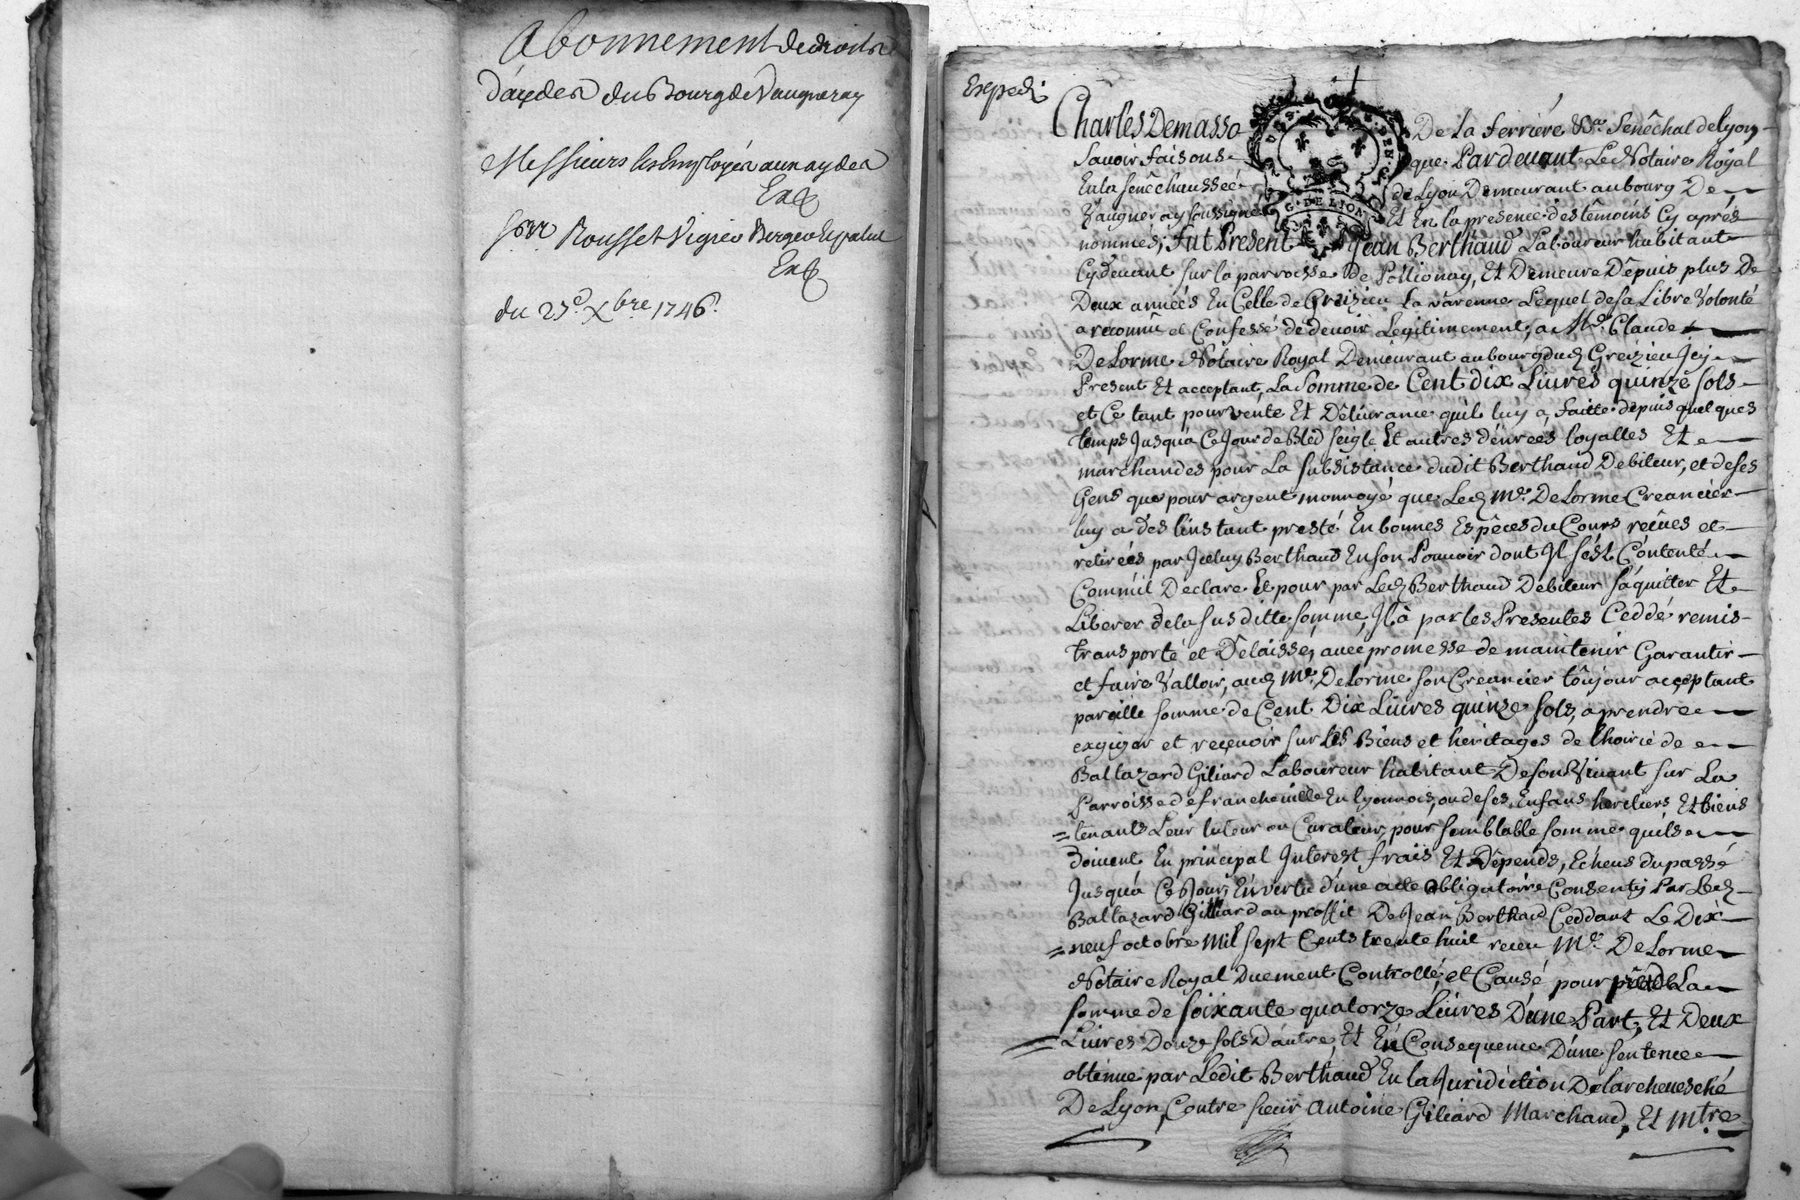 Abonnement de droits
d'aydes du Bourg de Vaugneray
Messieurs les Employés aux aydes
Et
Srs Rousset Vigier Berger
Et
du 27e Xbre 1746.
Expedi
Charles Demasso De la ferriere Sénêchal de Lyon
Savoir faisons que Pardevant Le Notaire Royal
En la senêchaussée de Lyon Demeurant au bourg De
Vaugneray soussigné Et En la présence des têmoins Cy aprés
G. DE LION
nommés, fut Present Jean Berthaud Laboureur habitant
Cydevant sur la parroisse De Pollionay, Et Demeure Dêpuis plus De
Deux années En Celle de Greizieu La varenne Lequel de sa Libre Volonté
a reconnû et Confessé de devoir Legitimement, a Me Claude
DeLorme Notaire Royal Demeurant au bourg dud Greizieu Jcy
Present Et acceptant, La Somme de Cent dix Livres quinze sols
et Ce tant pour vente Et Dêlivrance qu'il luy a faitte depuis quelques
temps Jusqu'a Ce Jour de Bled seigle Et autres dénrées loyalles Et
marchandes pour La subsistance dudit Berthaud Debiteur, et de ses
Gens que pour argent monnoyé que Led Me DeLorme Creancier
luy a des l'instant presté En bonnes Espêces du Cours reçûes et
retirées par Jceluy Berthaud En son Pouvoir dont Jl s'ést Contenté
Comm'il Declare Et pour par Led Berthaud Debiteur s'aquitter Et
Liberer de la susditte somme, Jl à par les Presentes Ceddé remis
transporté et Dêlaissé, avec promesse de maintenir Garantir
et faire Valloir, aud Me DeLorme son Creancier toûjour acceptant
pareille somme de Cent Dix Livres quinze sols, a prendre
exgiger et reçevoir sur les Biens et héritages de l'hoirie de
Baltazard Giliard Laboureur habitant De son Vivant sur La
Parroisse de francheville En lyonnois, ou de ses Enfans heritiers Et biens
=tenants Leur tuteur ou Curateur, pour semblable somme qu'ils
doivent En principal Jnterest frais Et Dêpends, Echeus du passé
Jusqu'à Ce Jour, En vertu d'une acte obligatoire Consenty Par Led
Baltazard Gilliard au proffit De Jean Berthaud Ceddant Le Dix
=neuf octobre Mil sept Cents trente huit receu Me DeLorme
Notaire Royal Duement Controllé, et Causé pour La
somme de soixante quatorze Livres D'une Part, Et Deux
Livres Douze sols D'autre, Et En Consequence D'une sentence
obtenue par Ledit Berthaud En la Juridiction De l'archevesché
De Lyon, Contre sieur Antoine Giliard Marchand, Et Mtre